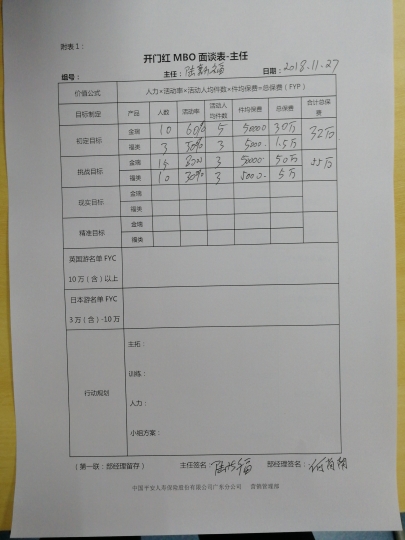 附表1：
开门红MBO面谈表-主任
组号： 主任： 日期：2018.11.27
价值公式 人力×活动率×活动人均件数×件均保费=总保费（FYP）
目标制定 产品 人数 活动率 活动人均件数 件均保费 总保费 合计总保费
初定目标 金瑞 10 60% 5 30万 32万
福类 3 30% 3 5000. 1.5万
挑战目标 金瑞 15 3 50000. 50万 55万
福类 10 30% 3 5000. 5万
现实目标 金瑞
福类
精准目标 金瑞
福类
英国游名单FYC
10万（含）以上
日本游名单FYC
3万（含）-10万
行动规划
主拓：
训练：
人力：
小组方案：
（第一联：部经理留存） 主任签名： 部经理签名：
中国平安人寿保险股份有限公司广东分公司 营销管理部